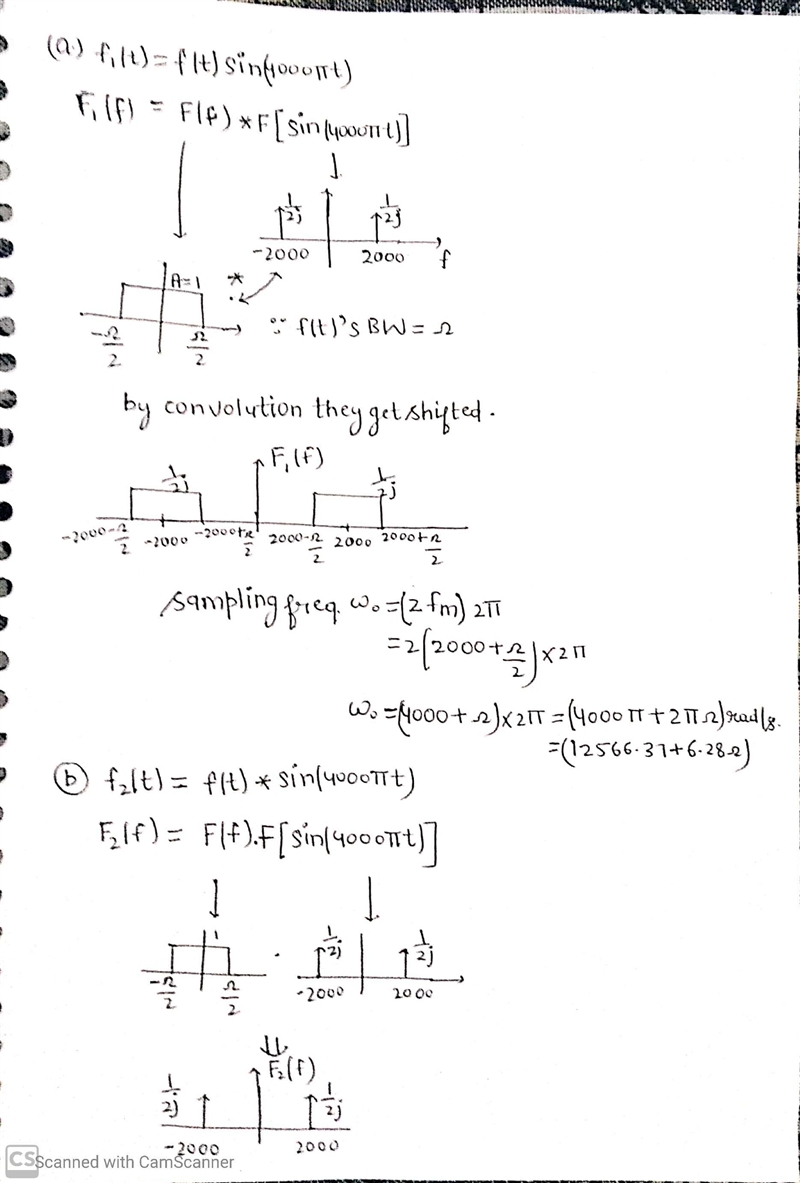 (a.) f₁(t) = f(t) sin(4000πt)
F₁(f) = F(f) * F[sin(4000πt)]
1/2j 1/2j
-2000 2000 f
A=1 *
-Ω/2 Ω/2 ∵ f(t)'s BW = Ω
by convolution they get shifted.
F₁(f)
1/2j 1/2j
-2000-Ω/2 -2000 -2000+Ω/2 2000-Ω/2 2000 2000+Ω/2
sampling freq. ω₀ = (2fm) 2π
= 2(2000+Ω/2)×2π
ω₀ = (4000+Ω)×2π = (4000π+2πΩ) rad/s.
= (12566.37+6.28Ω)
(b) f₂(t) = f(t) * sin(4000πt)
F₂(f) = F(f).F[sin(4000πt)]
1 . 1/2j 1/2j
-Ω/2 Ω/2 -2000 2000
F₂(f)
1/2j 1/2j
-2000 2000
CS Scanned with CamScanner